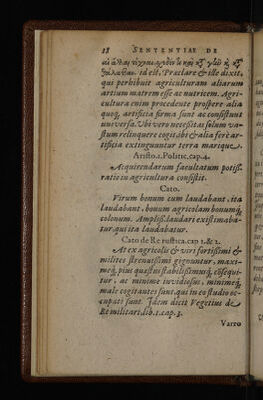 28 SENTENTIAE DE
id est, Praclare & ille dixit,
qui perhibuit agriculturam aliarum
artium matrem esse ac nutricem. Agri-
cultura enim procedente prospere alia
quoq; artificia firma sunt ac consistunt
vniuersa. Vbi vero necessitas solum va-
stum relinquere cogit, ibi & alia ferè ar-
tificia extinguuntur terra marique.
Aristo. 2. Politic. cap. 4.
Acquirendarum facultatum potiss.
ratio in agricultura consistit.
Cato.
Virum bonum cum laudabant, ita
laudabant, bonum agricolam bonumq;
colonum. Ampliss. laudari existimaba-
tur, qui ita laudabatur.
Cato de Re rustica. cap 1. & 2.
At ex agricolis & viri fortissimi &
milites strenuissimi gignuntur, maxi-
meq; pius quæstus stabilissimusq; cõsequi-
tur, ac minime inuidiosus, minimeq;
male cogitantes sunt, qui in eo studio oc-
cupati sunt. Idem dicit Vegetius de
Re militari. lib. 1. cap. 3.
Varro